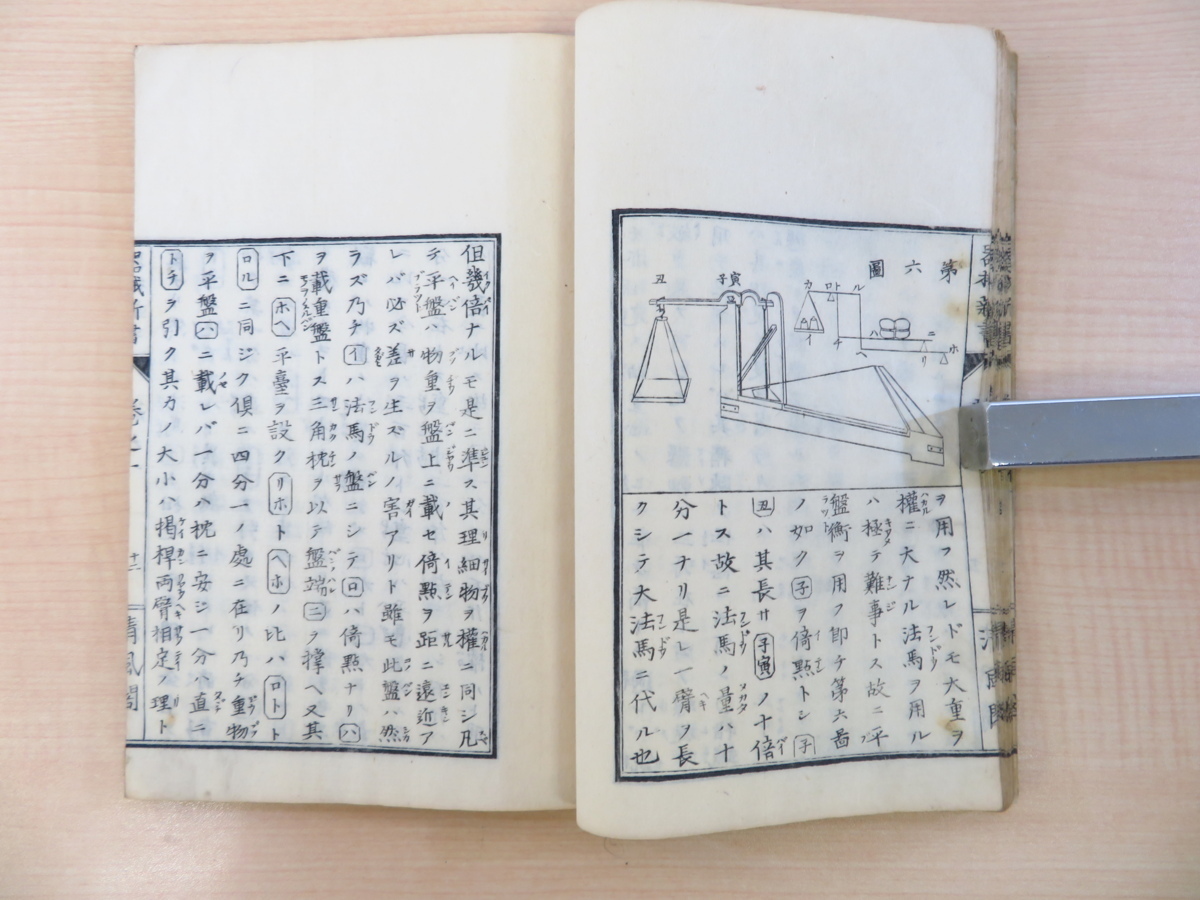 第六圖
丑
子寅
カ
ロトル
イ
チ
ハ
ヘ
ニ
リ
ホ
ヲ用フ然レドモ大重ヲ
權ニ大ナル法馬ヲ用ル
ハ極テ難事トス故ニ平
盤衡ヲ用フ即チ第六啚
ノ如ク子ヲ倚點トシ子
丑ハ其長サ子寅ノ十倍
トス故ニ法馬ノ量ハ十
分一ナリ是レ一臂ヲ長
クシテ大法馬ニ代ル也
但幾倍ナルモ是ニ準ス其理細物ヲ權ニ同シ凡
テ平盤ハ物重ヲ盤上ニ載セ倚點ヲ距ニ遠近ア
レバ必ズ差ヲ生ズルノ害アリト雖モ此盤ハ然
ラズ乃チイハ法馬ノ盤ニシテロハ倚點ナリハ
ヲ載重盤トス三角枕ヲ以テ盤端ニヲ撑ヘ又其
下ニホヘ平臺ヲ設クリホトヘホノ比ハロトト
ロルニ同ジク倶ニ四分一ノ處ニ在リ乃チ重物
ヲ平盤ハニ載レバ一分ハ枕ニ安シ一分ハ直ニ
トチヲ引ク其力ノ大小ハ揭桿兩臂相定ノ理ト
器械新書
卷之一
十二
清風閣